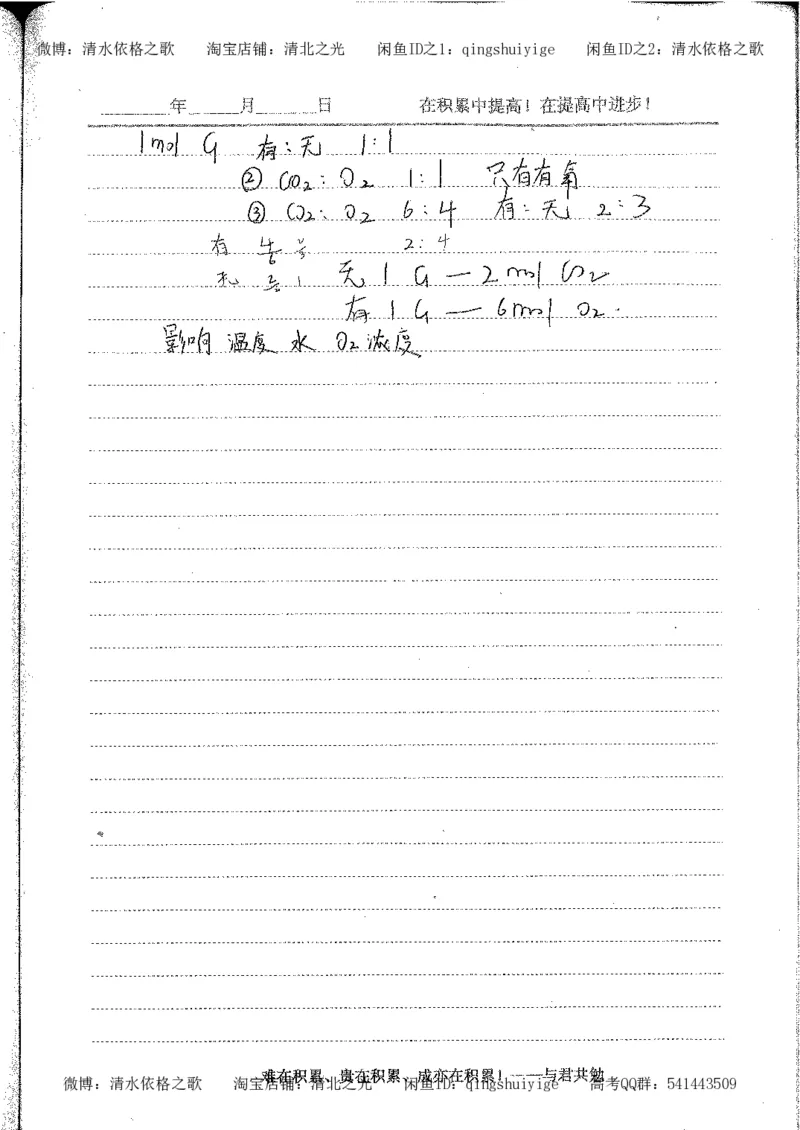 微博：清水依格之歌 淘宝店铺：清北之光 闲鱼ID之1：qingshuiyige 闲鱼ID之2：清水依格之歌
年 月 日 在积累中提高！在提高中进步！
1mol G 有：无 1:1
② CO₂：O₂ 1:1 只有有氧
③ CO₂：O₂ 6:4 有：无 2:3
有 2:4
无 1 G — 2mol CO₂
有 1 G — 6mol O₂.
影响 温度 水 O₂浓度
难在积累、贵在积累、成亦在积累！——与君共勉
微博：清水依格之歌 淘宝店铺：清北之光 闲鱼ID：qingshuiyige 高考QQ群：541443509